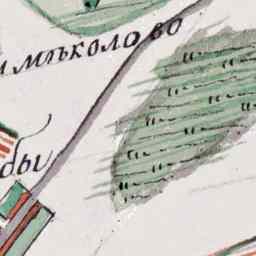 мѣколово
бы